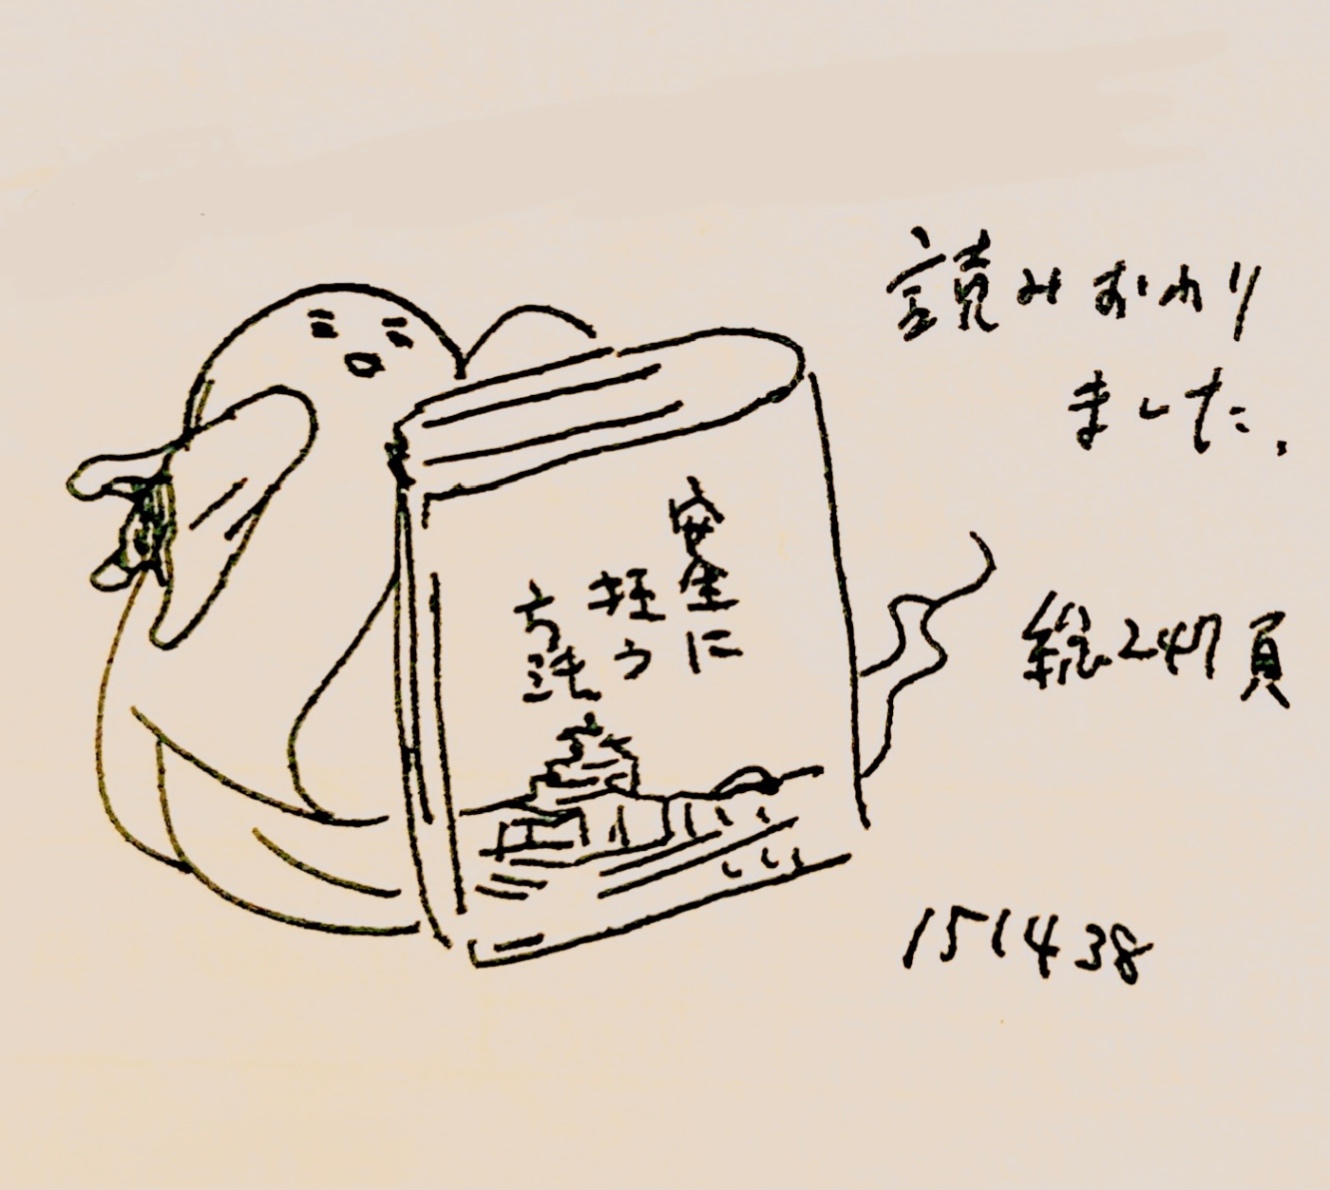 読みおわり
ました。
安全に
狂う
方法
総247頁
151438